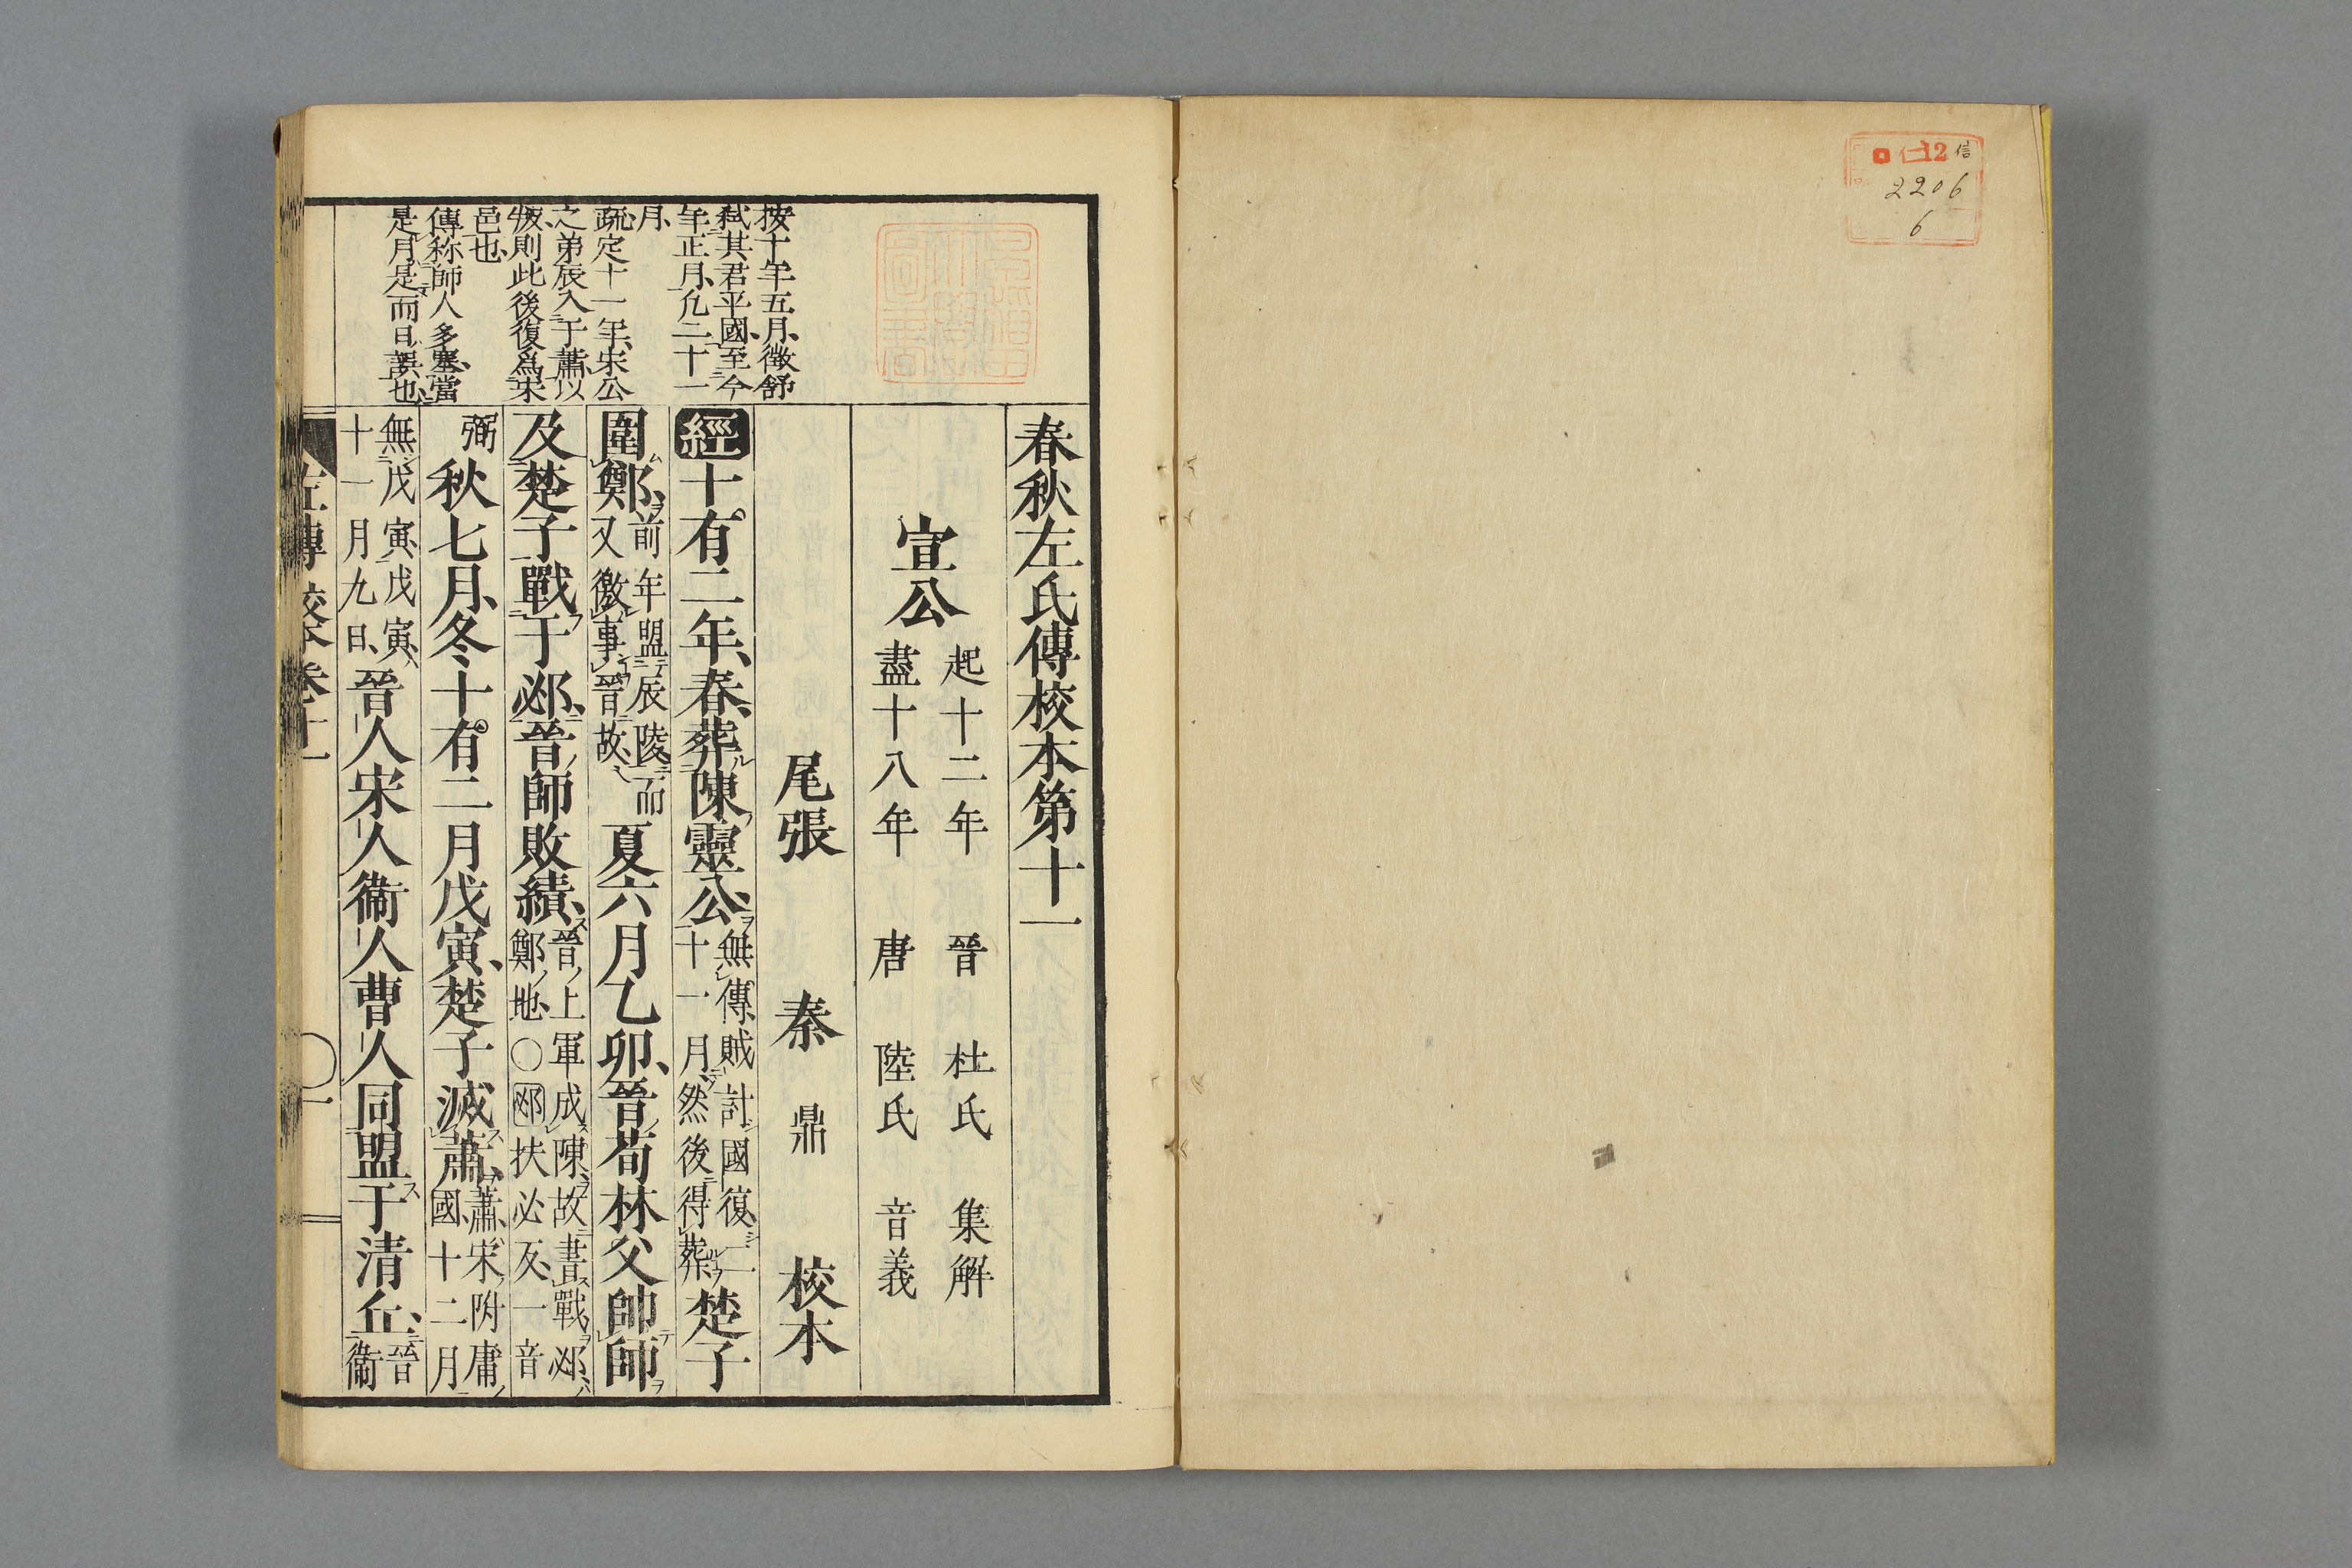 仁12 信
2206
6
按十年五月、徵舒
弑其君平國、至今
年正月、凡二十一
月、
疏、定十一年、宋公
之弟辰入于蕭以
叛、則此後復爲宋
邑也、
傳称師人多寒、當
是月、是而日、誤也、
春秋左氏傳校本第十一
宣公 起十二年 晉 杜氏 集解
盡十八年 唐 陸氏 音義
尾張 秦 鼎 校本
經十有二年、春、葬陳靈公、無傳、賊討國復、二十一月、然後得葬 楚子
圍鄭、前年盟辰陵、而又徼事晉故、 夏六月乙卯、晉荀林父帥師
及楚子戰于邲、晉師敗績、晉上軍成陳、故書戰、邲、鄭地、〇邲扶必反、一音
弼 秋七月、冬十有二月戊寅、楚子滅蕭、蕭、宋附庸國、十二月
無戊寅、戊寅、十一月九日、晉人宋人衞人曹人同盟于清丘、晉衞
左傳校本卷十一 〇一